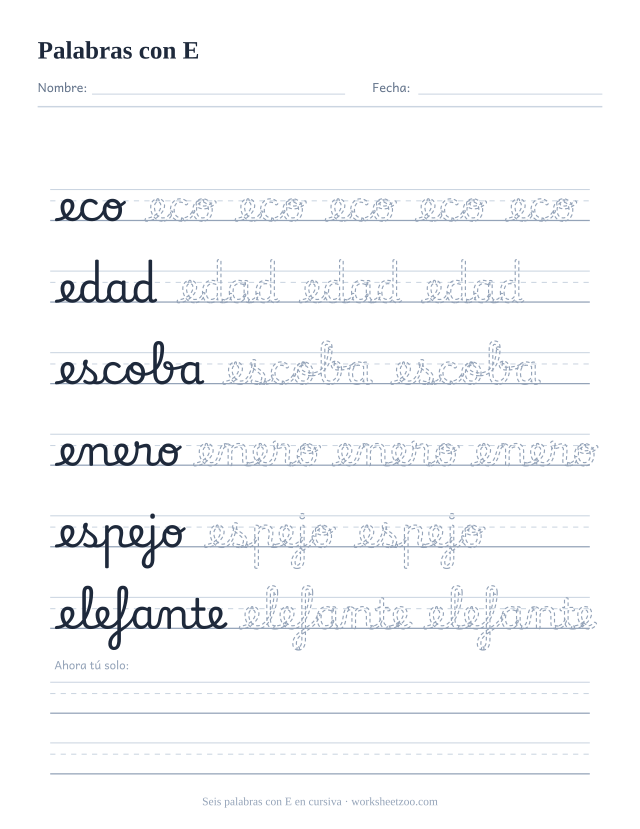 Palabras con E
Nombre: Fecha:
eco eco eco eco eco eco
edad edad edad edad
escoba escoba escoba
enero enero enero enero
espejo espejo espejo
elefante elefante elefante
Ahora tú solo:
Seis palabras con E en cursiva · worksheetzoo.com